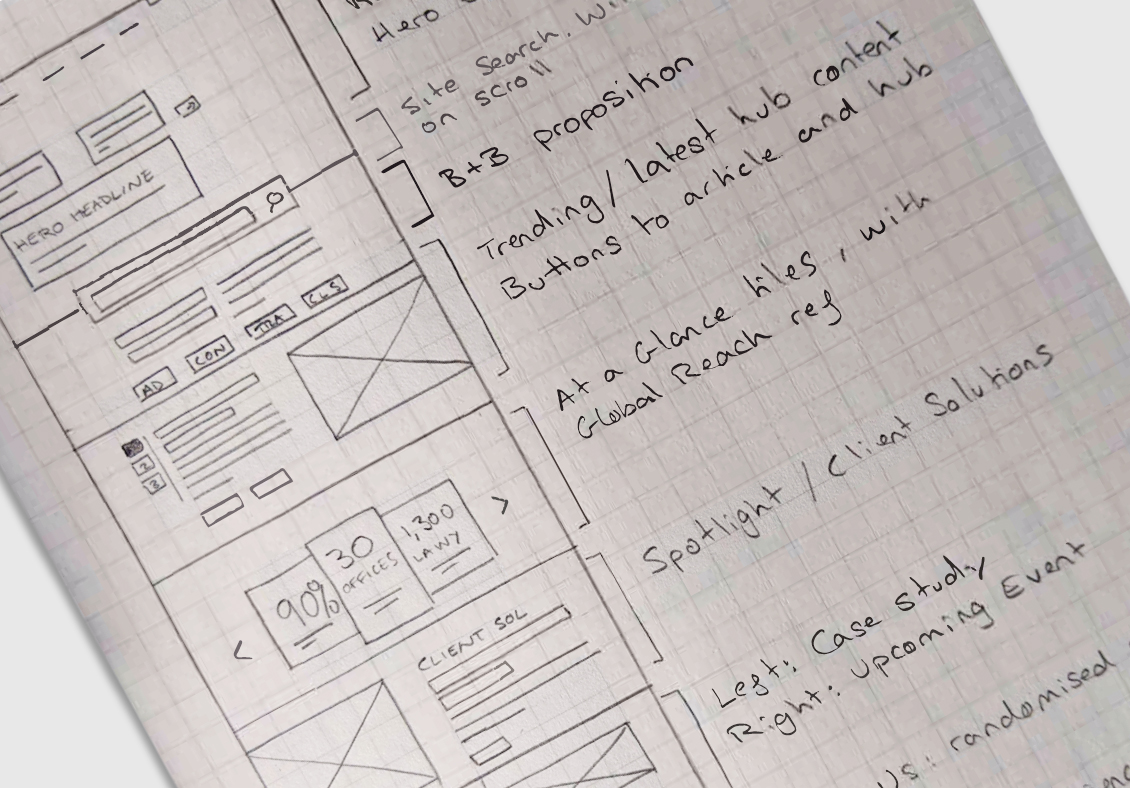 Hero
Site Search. Wi
on scroll
B+B proposition
Trending / latest hub content
Buttons to article and hub
At a Glance tiles, with
Global Reach ref
Spotlight / Client Solutions
Left: Case study
Right: Upcoming Event
Us: randomised
HERO HEADLINE
AD CON TRA CLS
2
3
90%
30
OFFICES
1,300
LAWY
CLIENT SOL